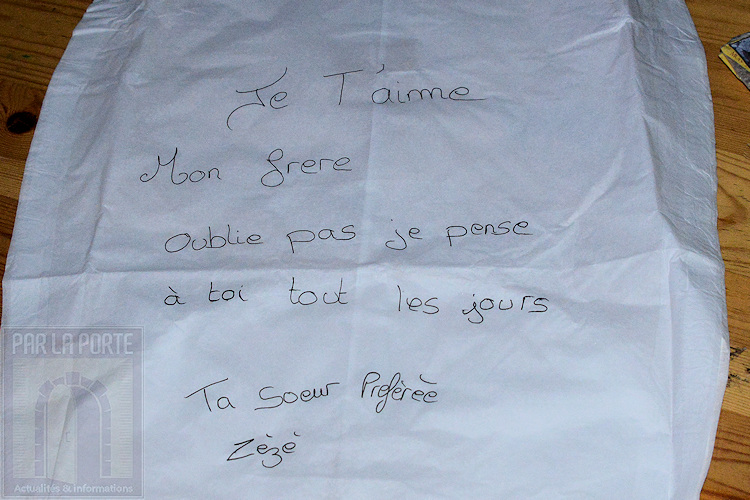 Je T'aime
Mon frere
Oublie pas je pense
à toi tout les jours
Ta Soeur Prefèrèè
Zèzè
PAR LA PORTE
Actualités & Informations